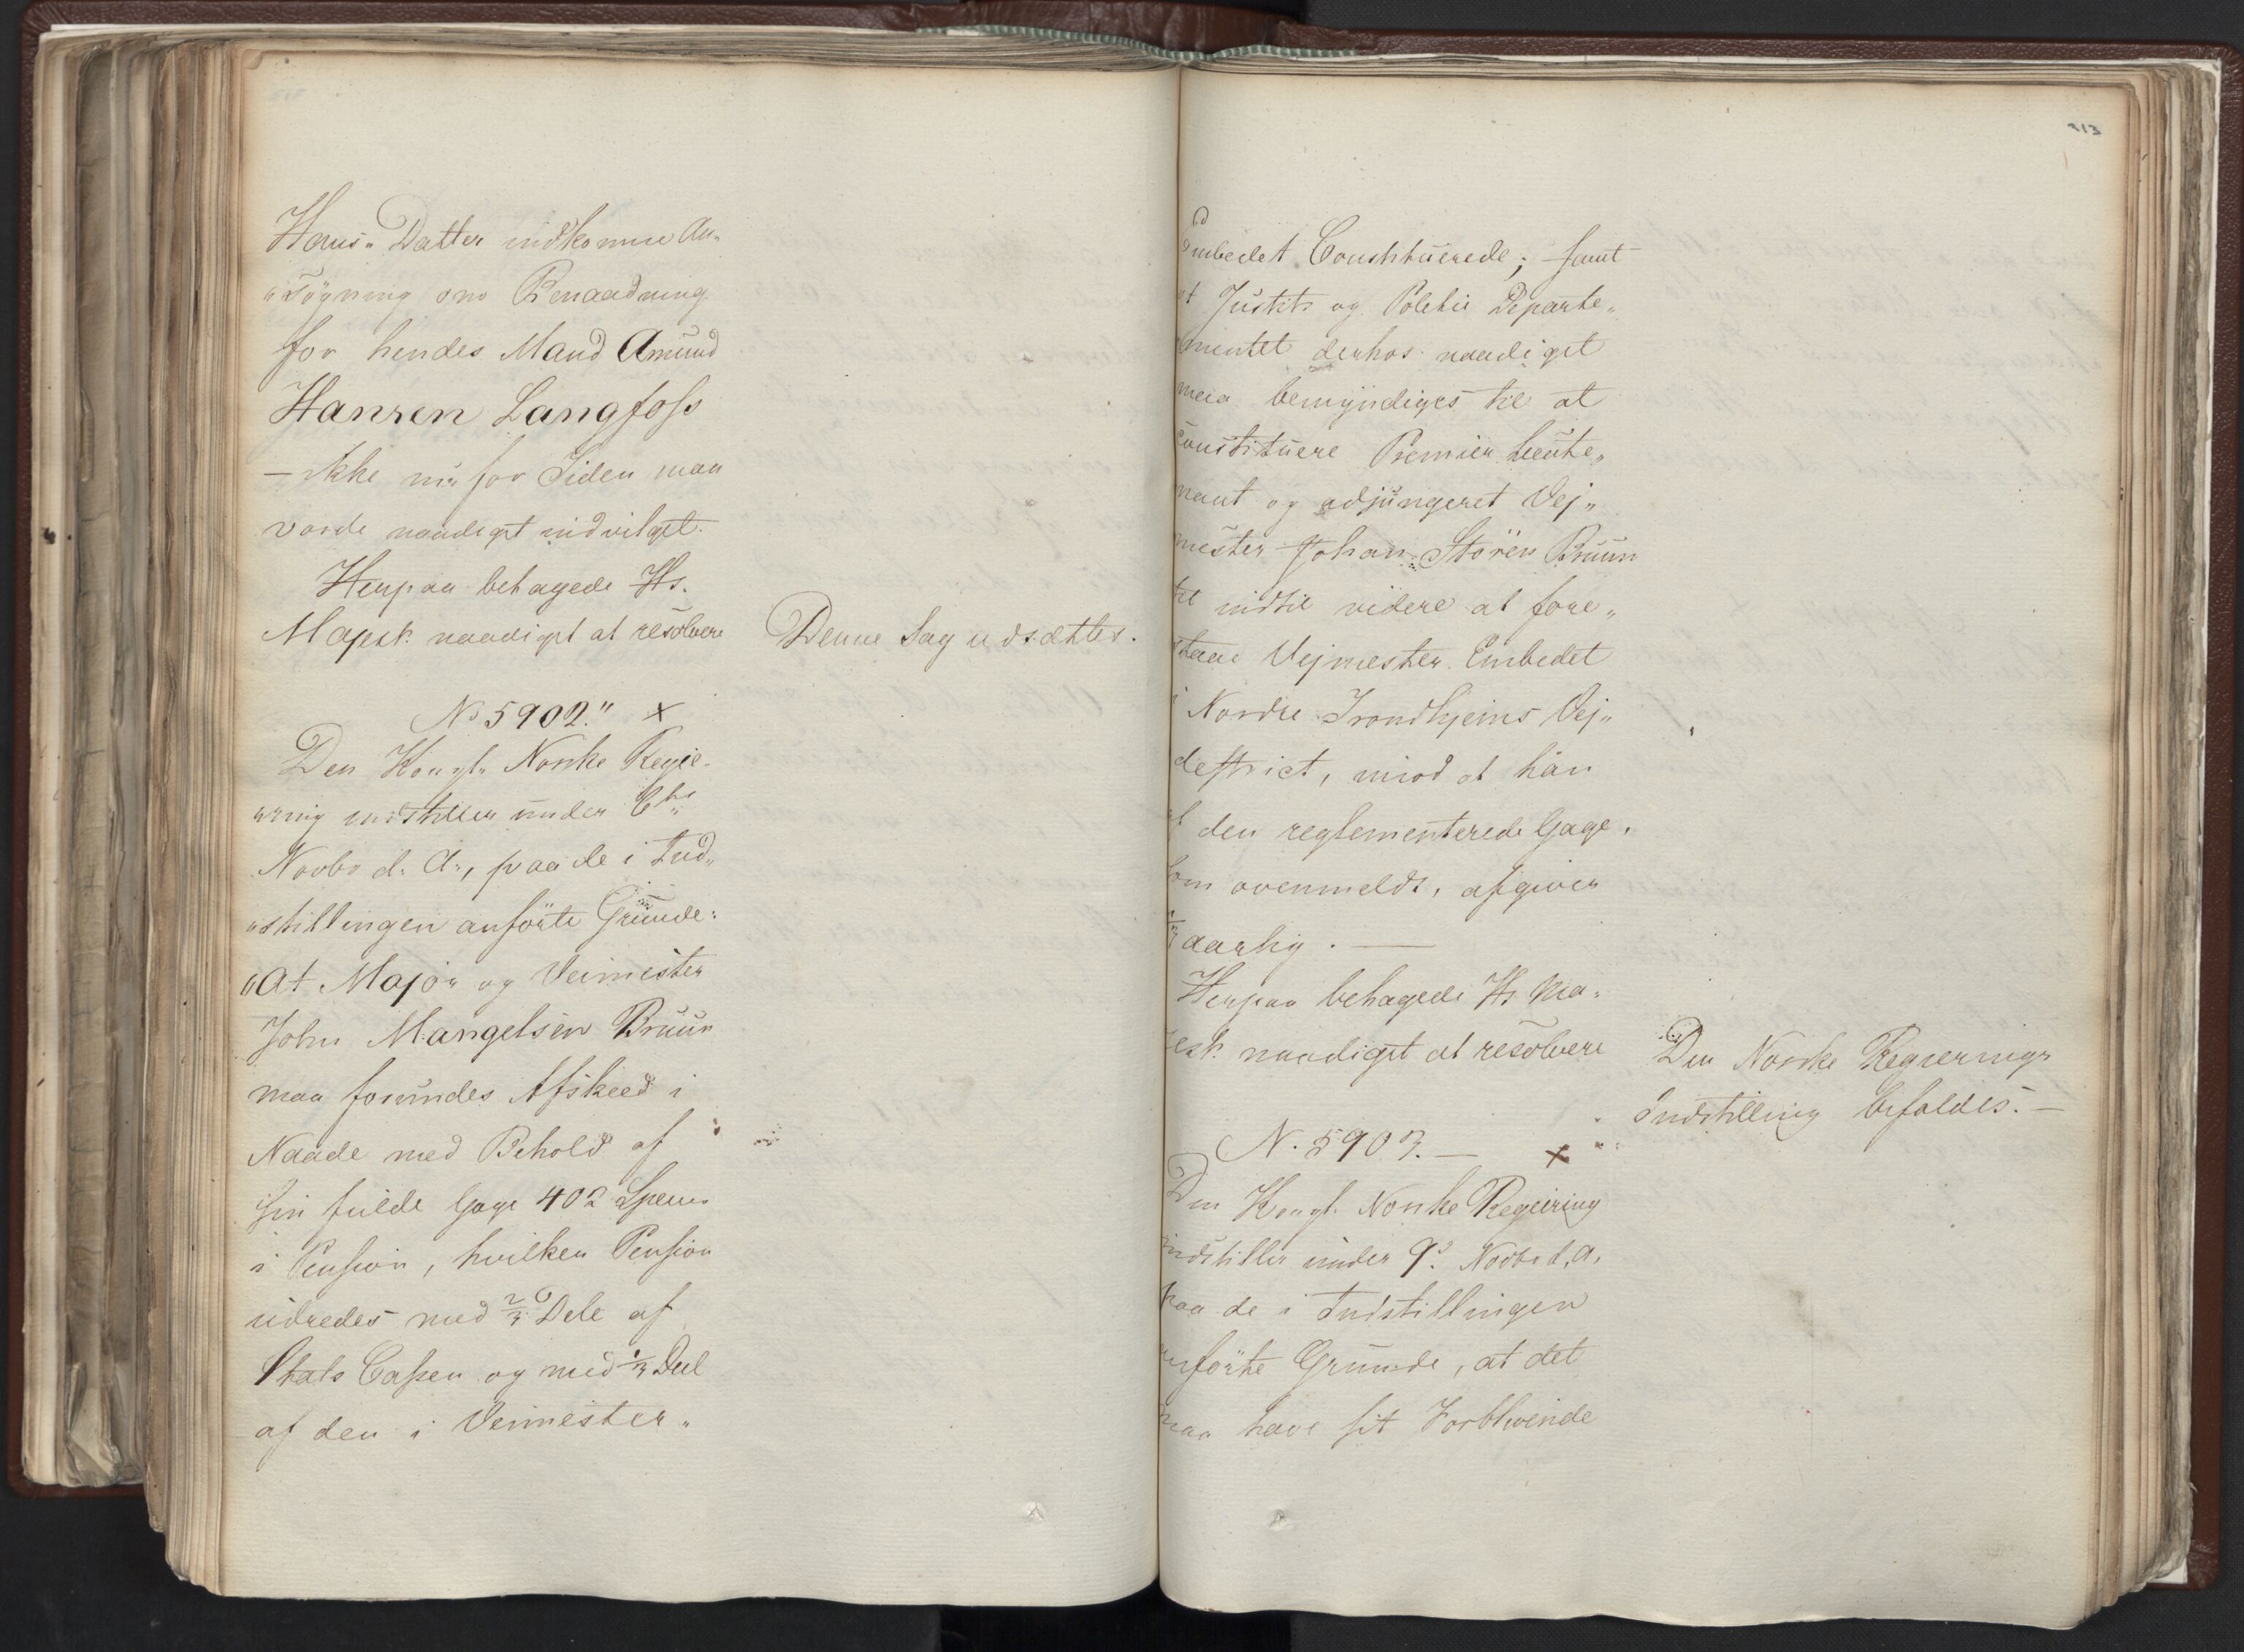 Hans„ Datter indkomne An„
„søgning om Benaadning
for hendes Mand Amund
Hansen Langfoss
— ikke nu for Tiden maa
vorde naadigst indvilget.
Herpaa behagede Hs.
Majest. naadigst at resolvere
Denne Sag udsættes.
No 5902." x
Den Kongl. Norske Regje„
„ring indstiller under
Novbr d. A., paa de i Ind„
„stillingen anförte Grunde:
„At Major og Veimester
John Mangelsen Bruun
maa forundes Afskeed i
Naade med Behold af
sin fulde Gage 402 Specier
i Pension, hvilken Pension
udredes med 2/3 Dele af
Stats Cassen og med 1/3 Deel
af den i Veimester„
213
Embedet Constituerede; samt
at Justits og Politie Departe„
mentet derhos naadigst
maa bemyndiges til at
constituere Premier Lieute„
nant og adjungeret Vej„
mester Johan Stören Bruun
til indtil videre at fore„
staae Vejmester Embedet
i Nordre Trondhjems Vej„
district, imod at han
af den reglementerede Gage,
som ovenmeldt, afgiver
1/3 aarlig. —
Herpaa behagede Hs Ma„
jest. naadigst at resolvere
Den Norske Regjerings
Indstilling bifaldes. —
N. 5903. — x
Den Kongl. Norske Regjering
indstiller under 9de Novbr d. A.
paa de i Indstillingen
anförte Grunde, at det
maa have sit Forblivende